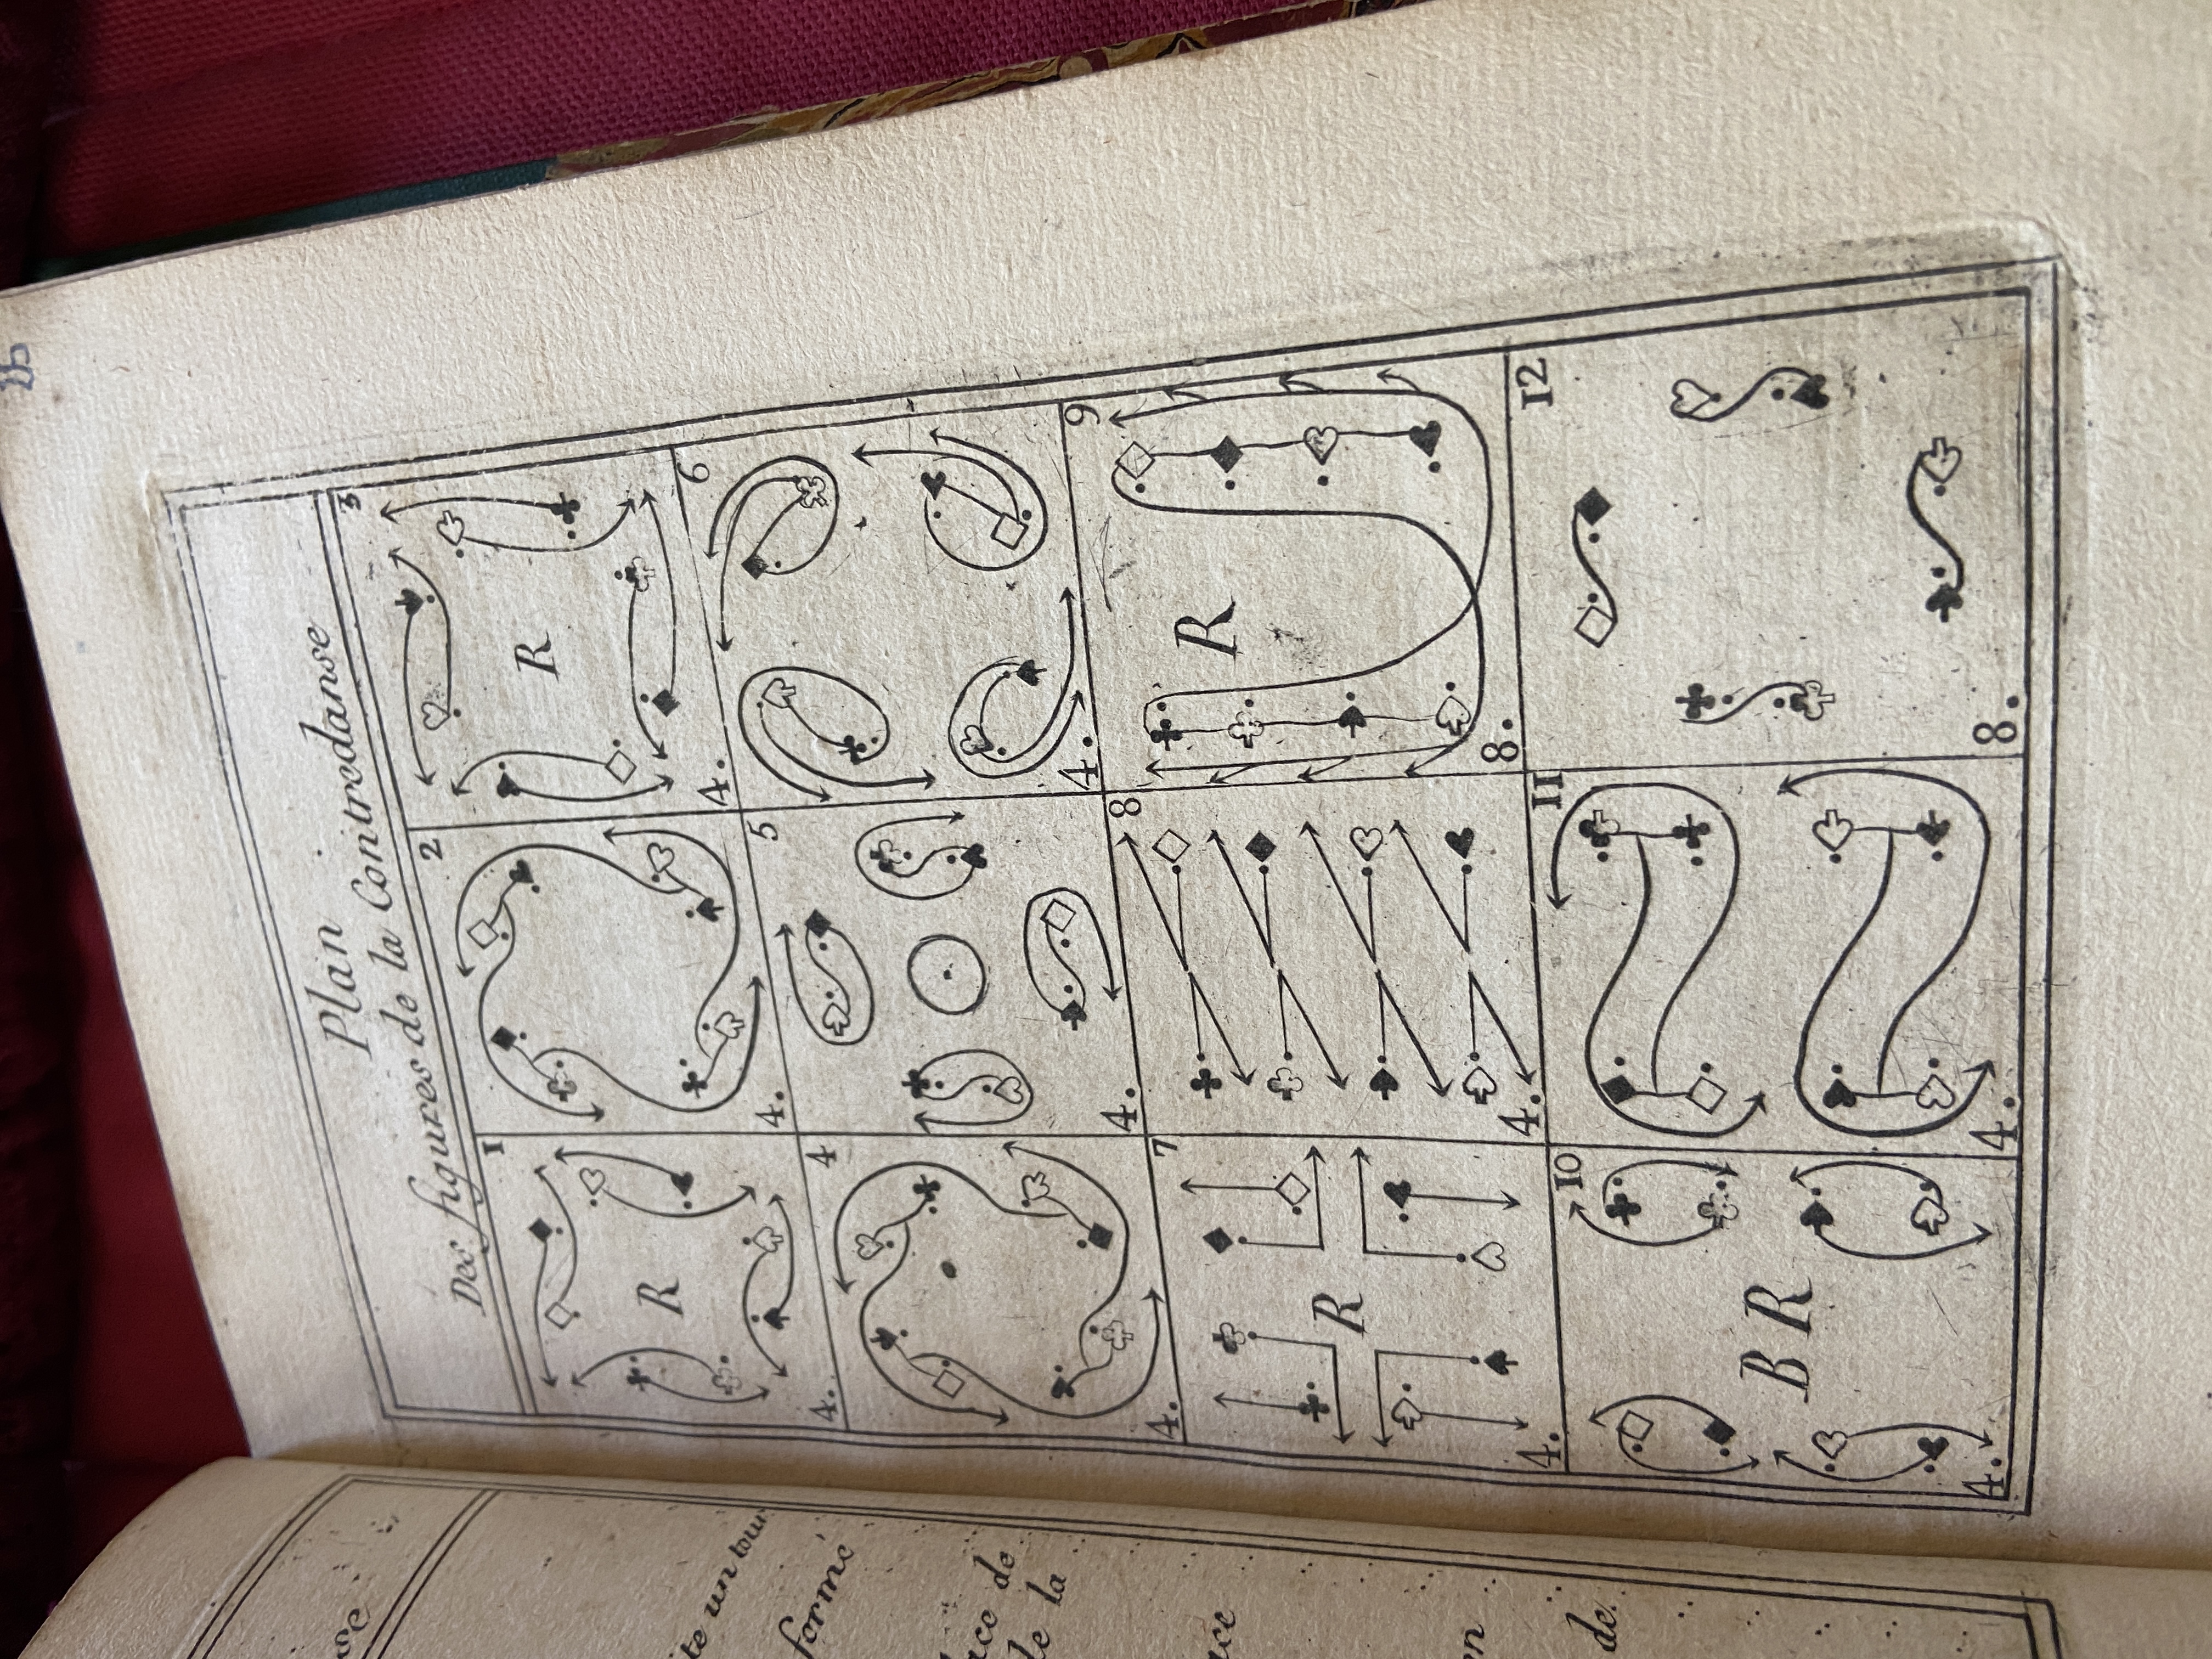 Plan
Des figures de la Contredanse
1
R
4.
2
4.
3
R
4.
4
4.
5
4.
6
4.
7
R
4.
8
4.
9
R
8.
10
B R
4.
11
4.
12
8.
un tour
formé
de
de la
en
de